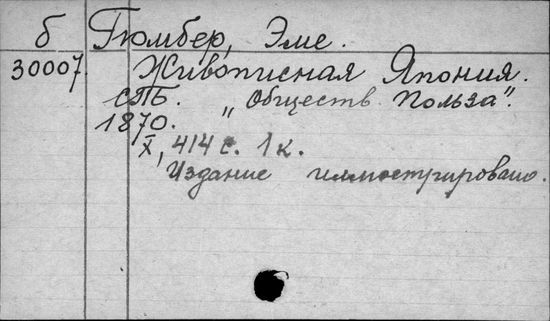 б Гюмбер, Эме.
30007. Живописная Япония.
СПБ. „Обществ. Польза".
1870.
X, 414 с. 1 к.
Издание иллюстрировано.